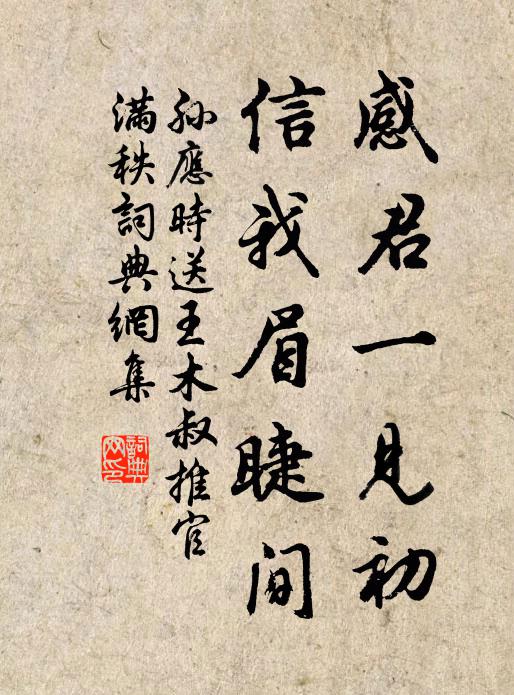 感君一見初
信我眉睫間
孫應時送王木叔推官
滿秩詞典網集
詞典网印